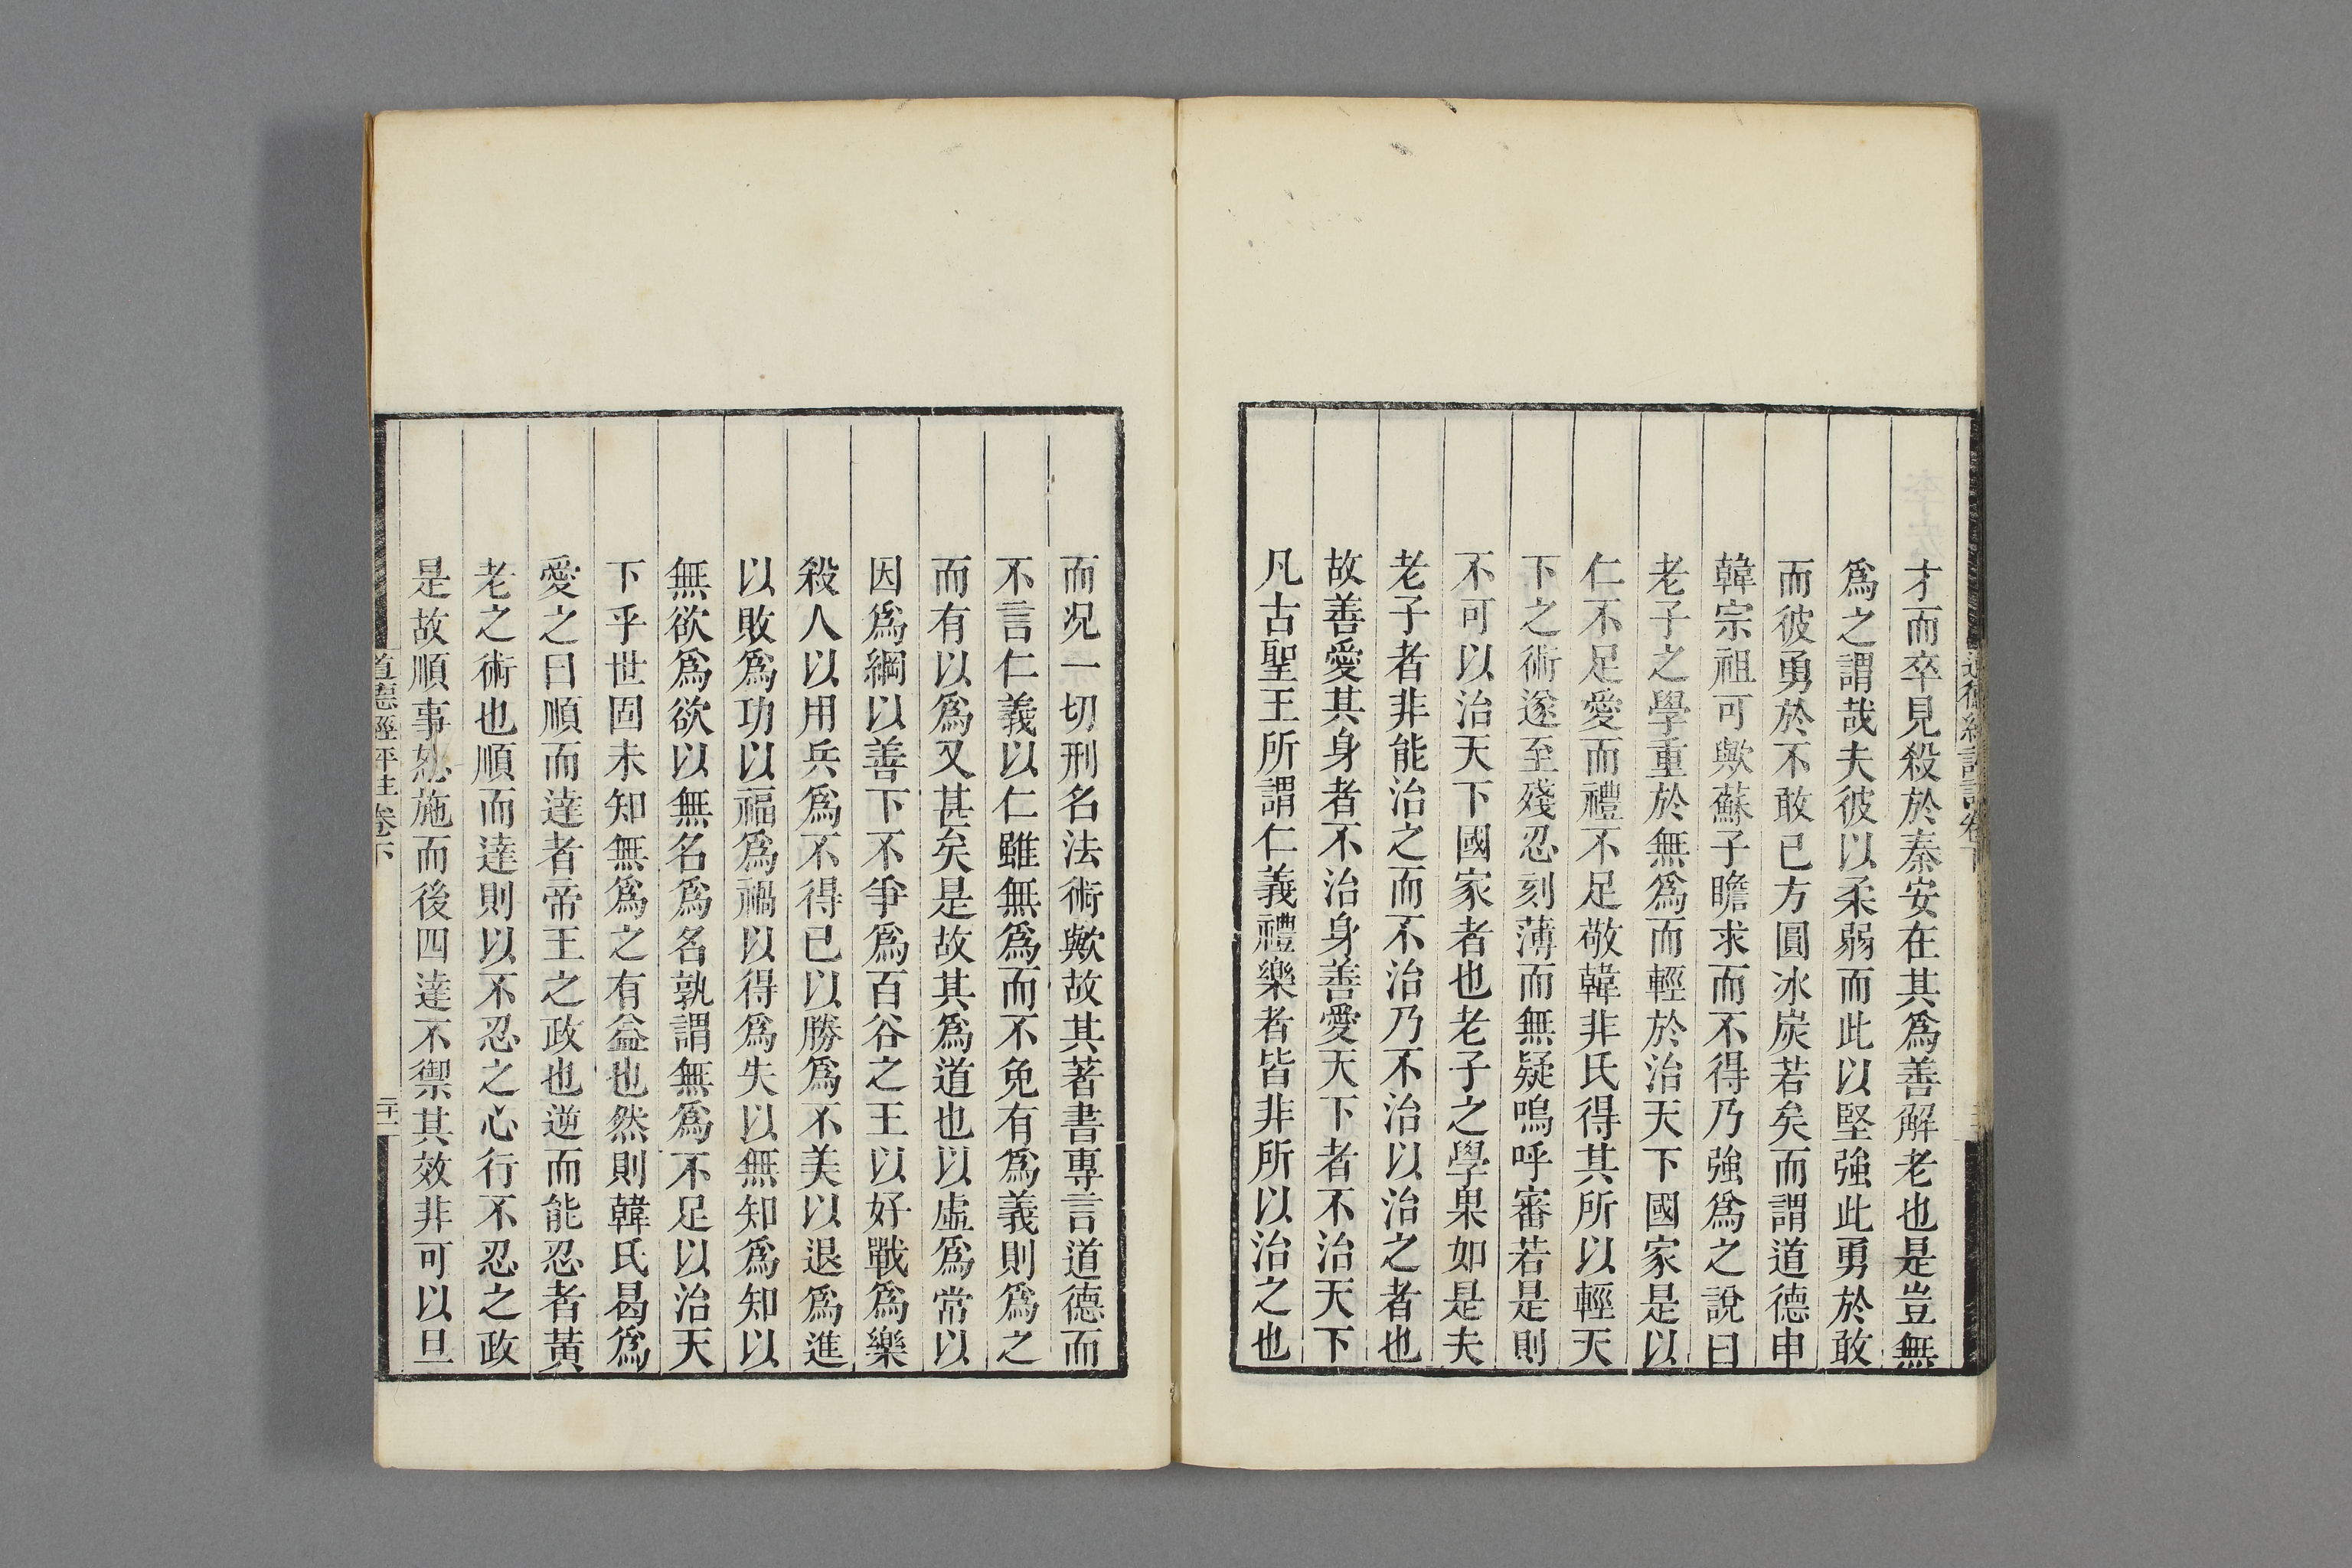 才而卒見殺於秦安在其爲善解老也是豈無
爲之謂哉夫彼以柔弱而此以堅強此勇於敢
而彼勇於不敢已方圓冰炭若矣而謂道德申
韓宗祖可歟蘇子瞻求而不得乃強爲之說曰
老子之學重於無爲而輕於治天下國家是以
仁不足愛而禮不足敬韓非氏得其所以輕天
下之術遂至殘忍刻薄而無疑嗚呼審若是則
不可以治天下國家者也老子之學果如是夫
老子者非能治之而不治乃不治以治之者也
故善愛其身者不治身善愛天下者不治天下
凡古聖王所謂仁義禮樂者皆非所以治之也
而況一切刑名法術歟故其著書專言道德而
不言仁義以仁雖無爲而不免有爲義則爲之
而有以爲又甚矣是故其爲道也以虛爲常以
因爲綱以善下不爭爲百谷之王以好戰爲樂
殺人以用兵爲不得已以勝爲不美以退爲進
以敗爲功以福爲禍以得爲失以無知爲知以
無欲爲欲以無名爲名孰謂無爲不足以治天
下乎世固未知無爲之有益也然則韓氏曷爲
愛之曰順而達者帝王之政也逆而能忍者黃
老之術也順而達則以不忍之心行不忍之政
是故順事恕施而後四達不禦其效非可以旦
道德經評注卷下
二十一